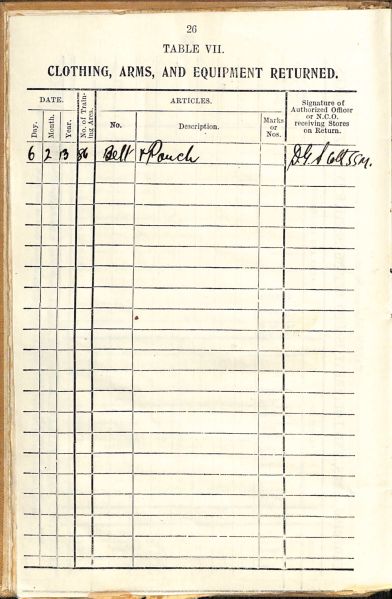 26
TABLE VII.
CLOTHING, ARMS, AND EQUIPMENT RETURNED.
DATE.
Day.
Month.
Year.
No. of Train-
ing Area.
ARTICLES.
No.
Description.
Marks
or
Nos.
Signature of
Authorized Officer
or N.C.O.
receiving Stores
on Return.
6 2 13 86 Belt + Pouch